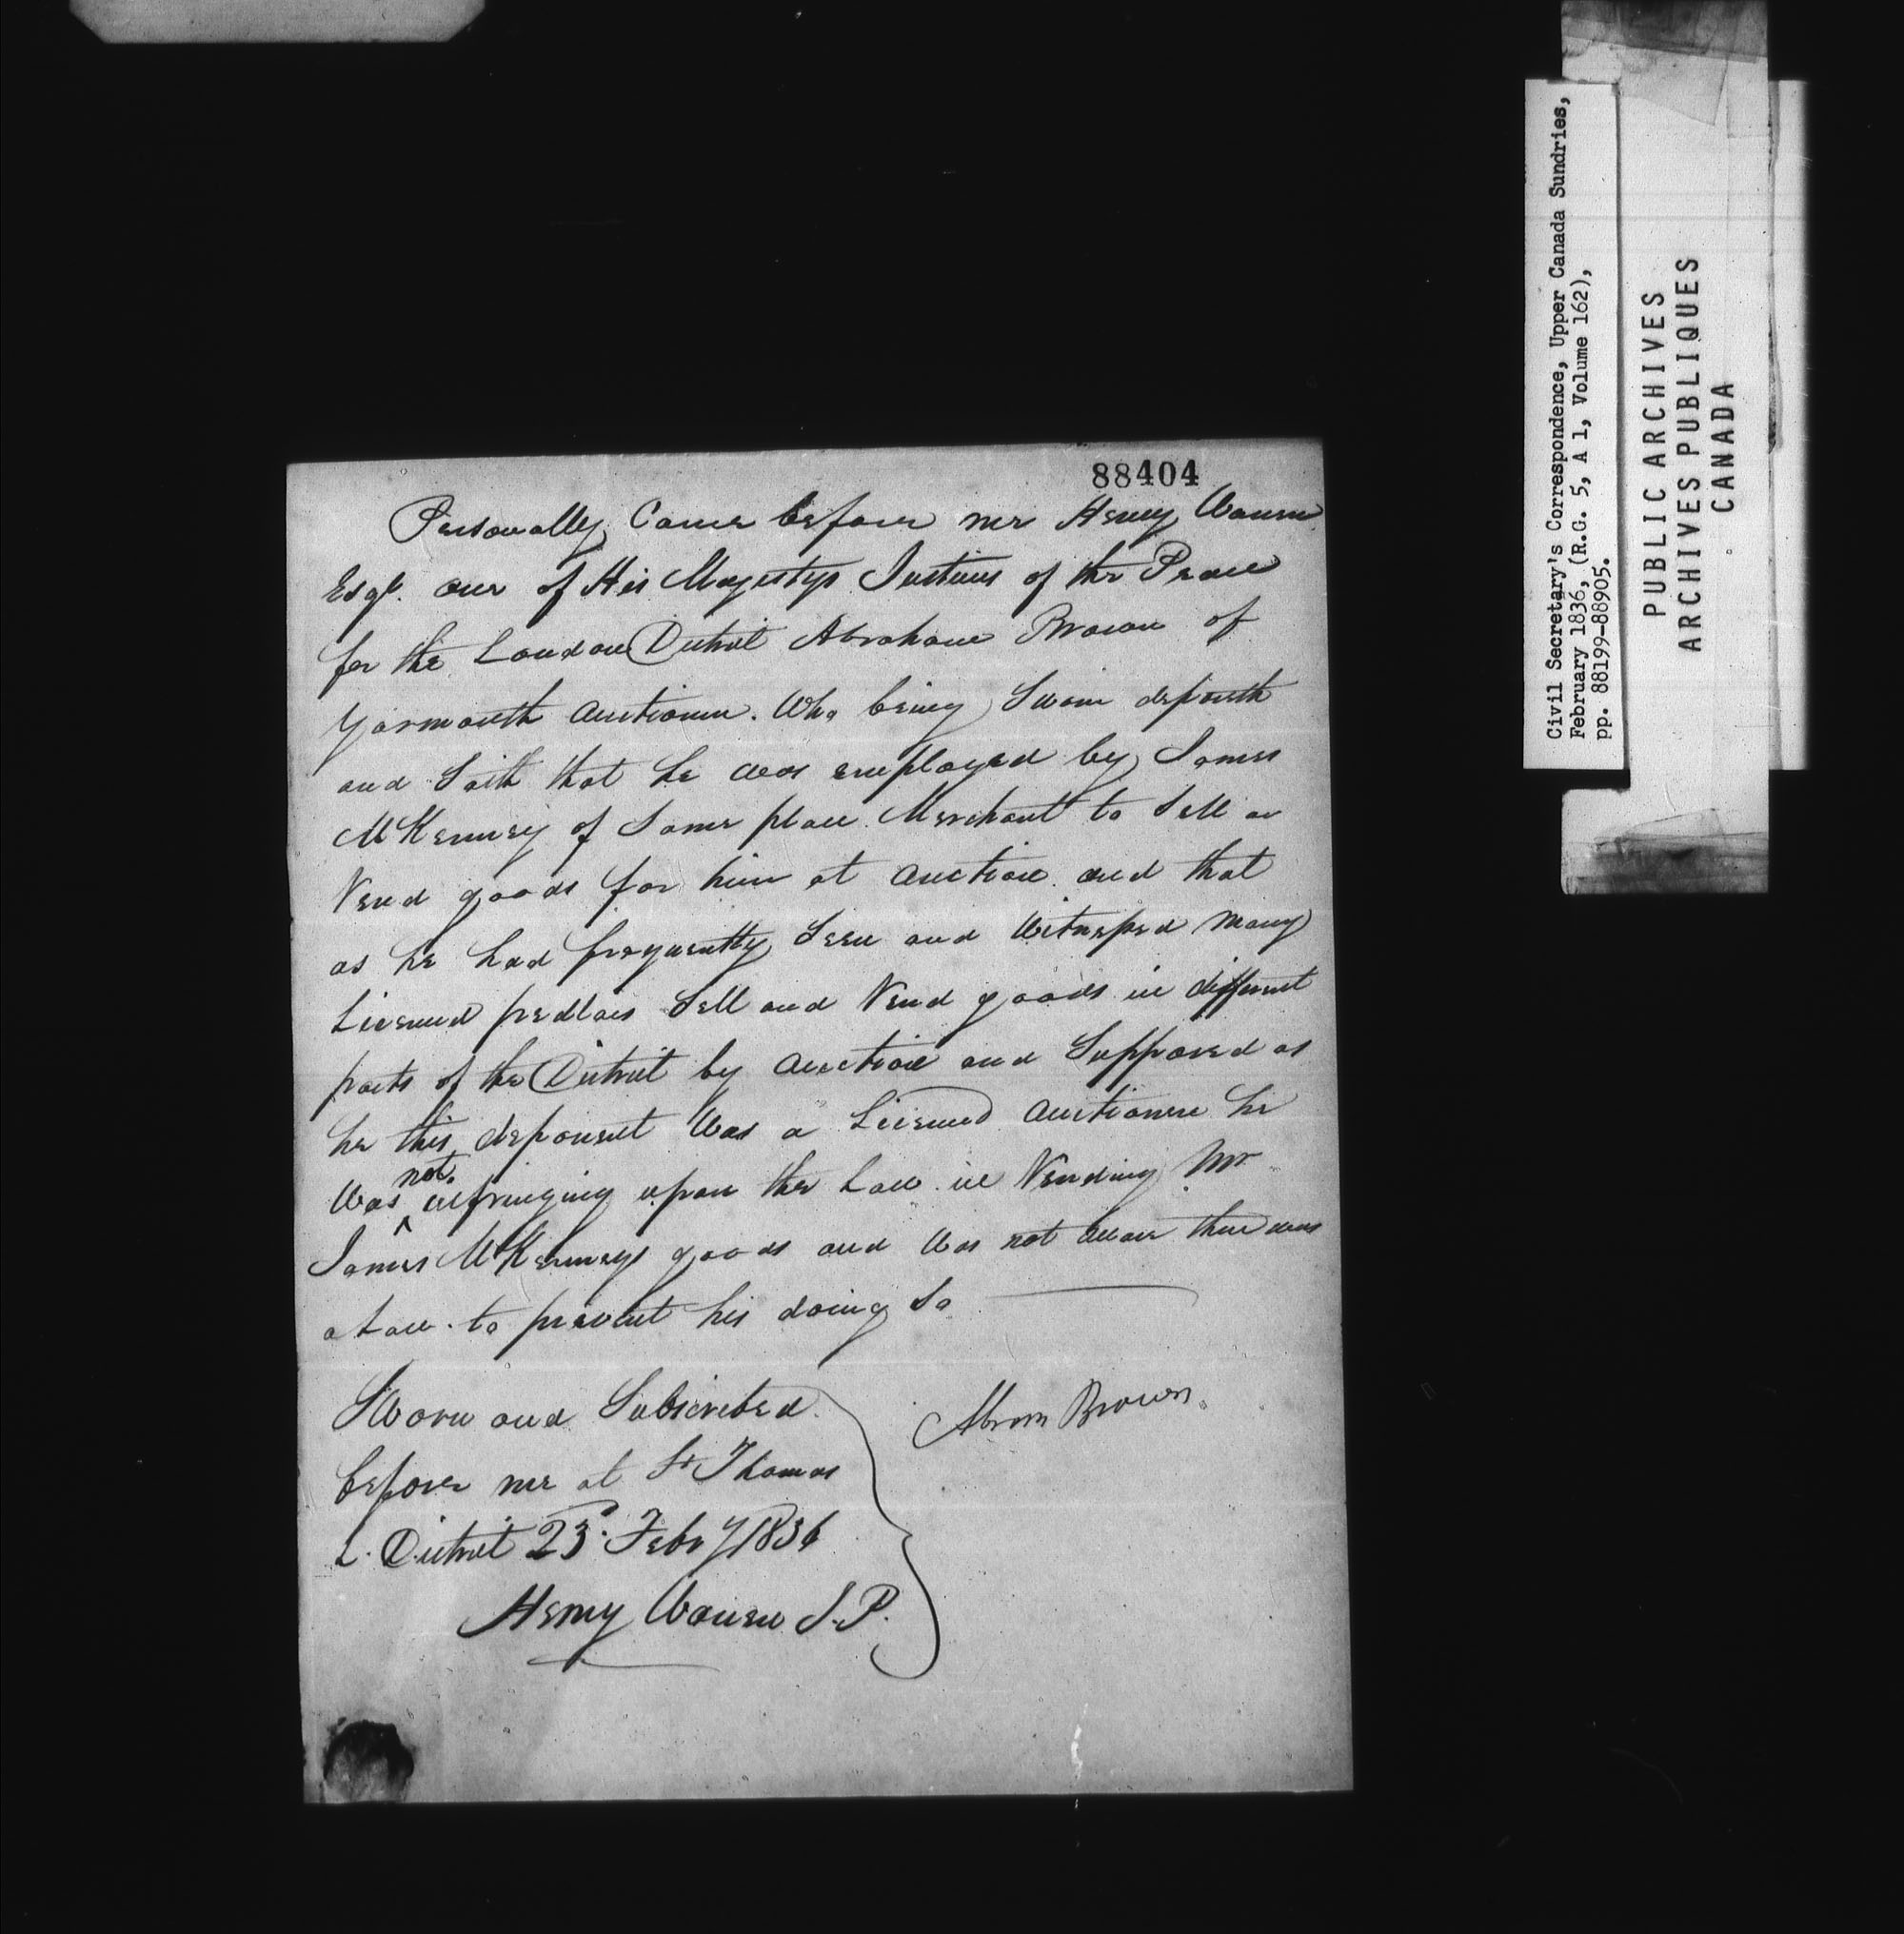 88404
Personally Came before me Henry Warren
Esqr. one of His Majestys Justices of the Peace
for the London District Abraham Brown of
Yarmouth Auctioneer. Who being Sworn deposeth
and Saith that he was employed by James
McKenney of Same place Merchant to Sell or
Vend goods for him at Auction and that
as he had frequently Seen and Witnessed many
Licensed pedlars Sell and Vend goods in different
parts of the District by Auction and Supposed as
he this deponent Was a Licensed Auctioneer he
Was not infringing upon the Law in Vending Mr
James McKenneys goods and Was not aware there was
a Law to prevent his doing So
Sworn and Subscribed
before me at St Thomas
L. District 23d Feby 1836
Henry Warren J.P.
Abrm Brown
Civil Secretary's Correspondence, Upper Canada Sundries,
February 1836, (R.G. 5, A 1, Volume 162),
pp. 88199-88905.
PUBLIC ARCHIVES
ARCHIVES PUBLIQUES
CANADA